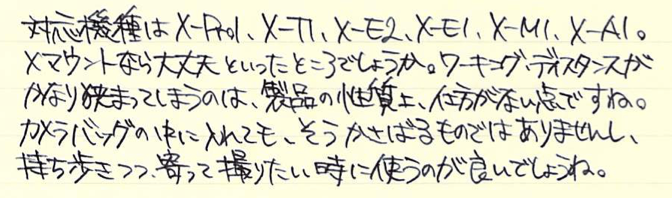 対応機種はX-Pro1、X-T1、X-E2、X-E1、X-M1、X-A1。
Xマウントなら大丈夫といったところでしょうか。ワーキング・ディスタンスが
かなり狭まってしまうのは、製品の性質上、仕方がない点ですね。
カメラバッグの中に入れても、そうかさばるものではありませんし、
持ち歩きつつ、寄って撮りたい時に使うのが良いでしょうね。